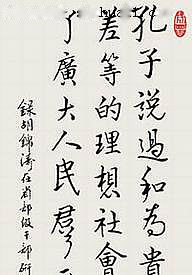 孔子說過和為貴
差等的理想社會
了廣大人民
錄胡錦濤在省部級干部研